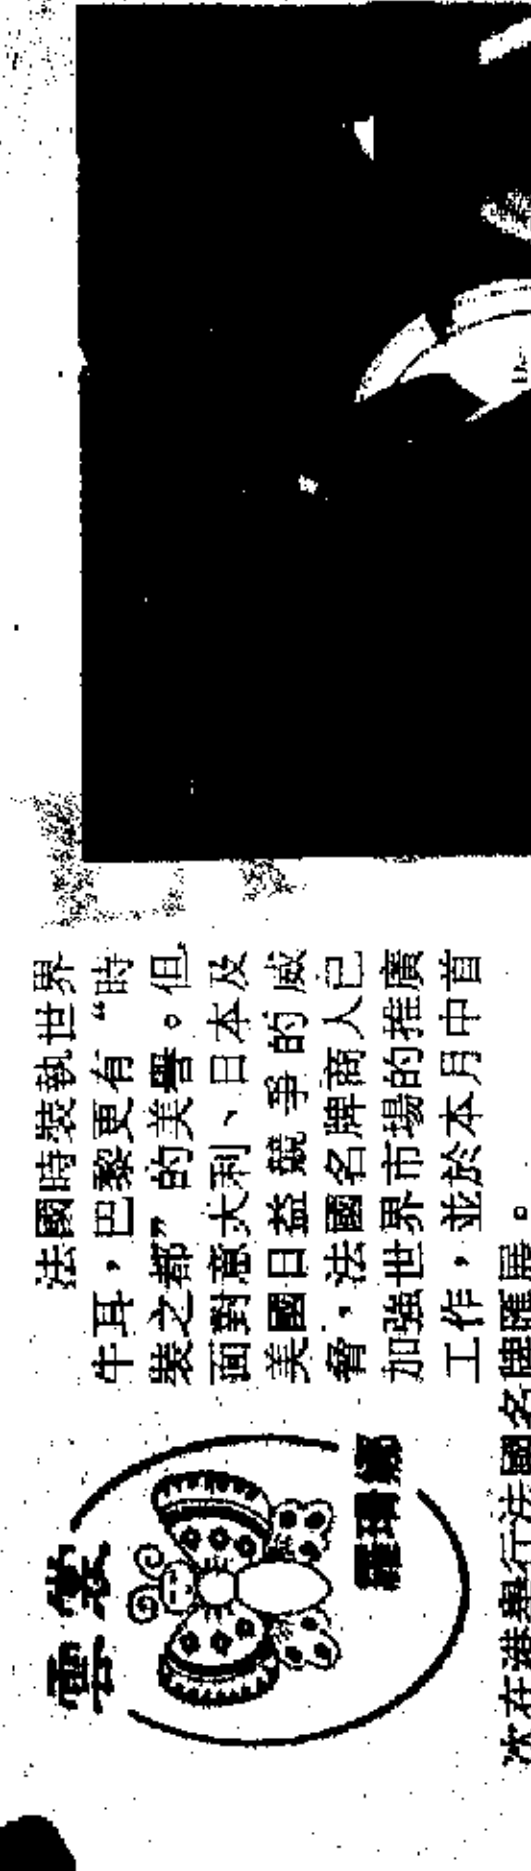 雲裳
法國時裝執世界
牛耳，巴黎更有“時
裝之都”的美譽。但
面對意大利、日本及
美國日益競爭的威
脅，法國名牌商人已
加強世界市場的推廣
工作，並於本月中首
次在港舉行法國名牌匯展。